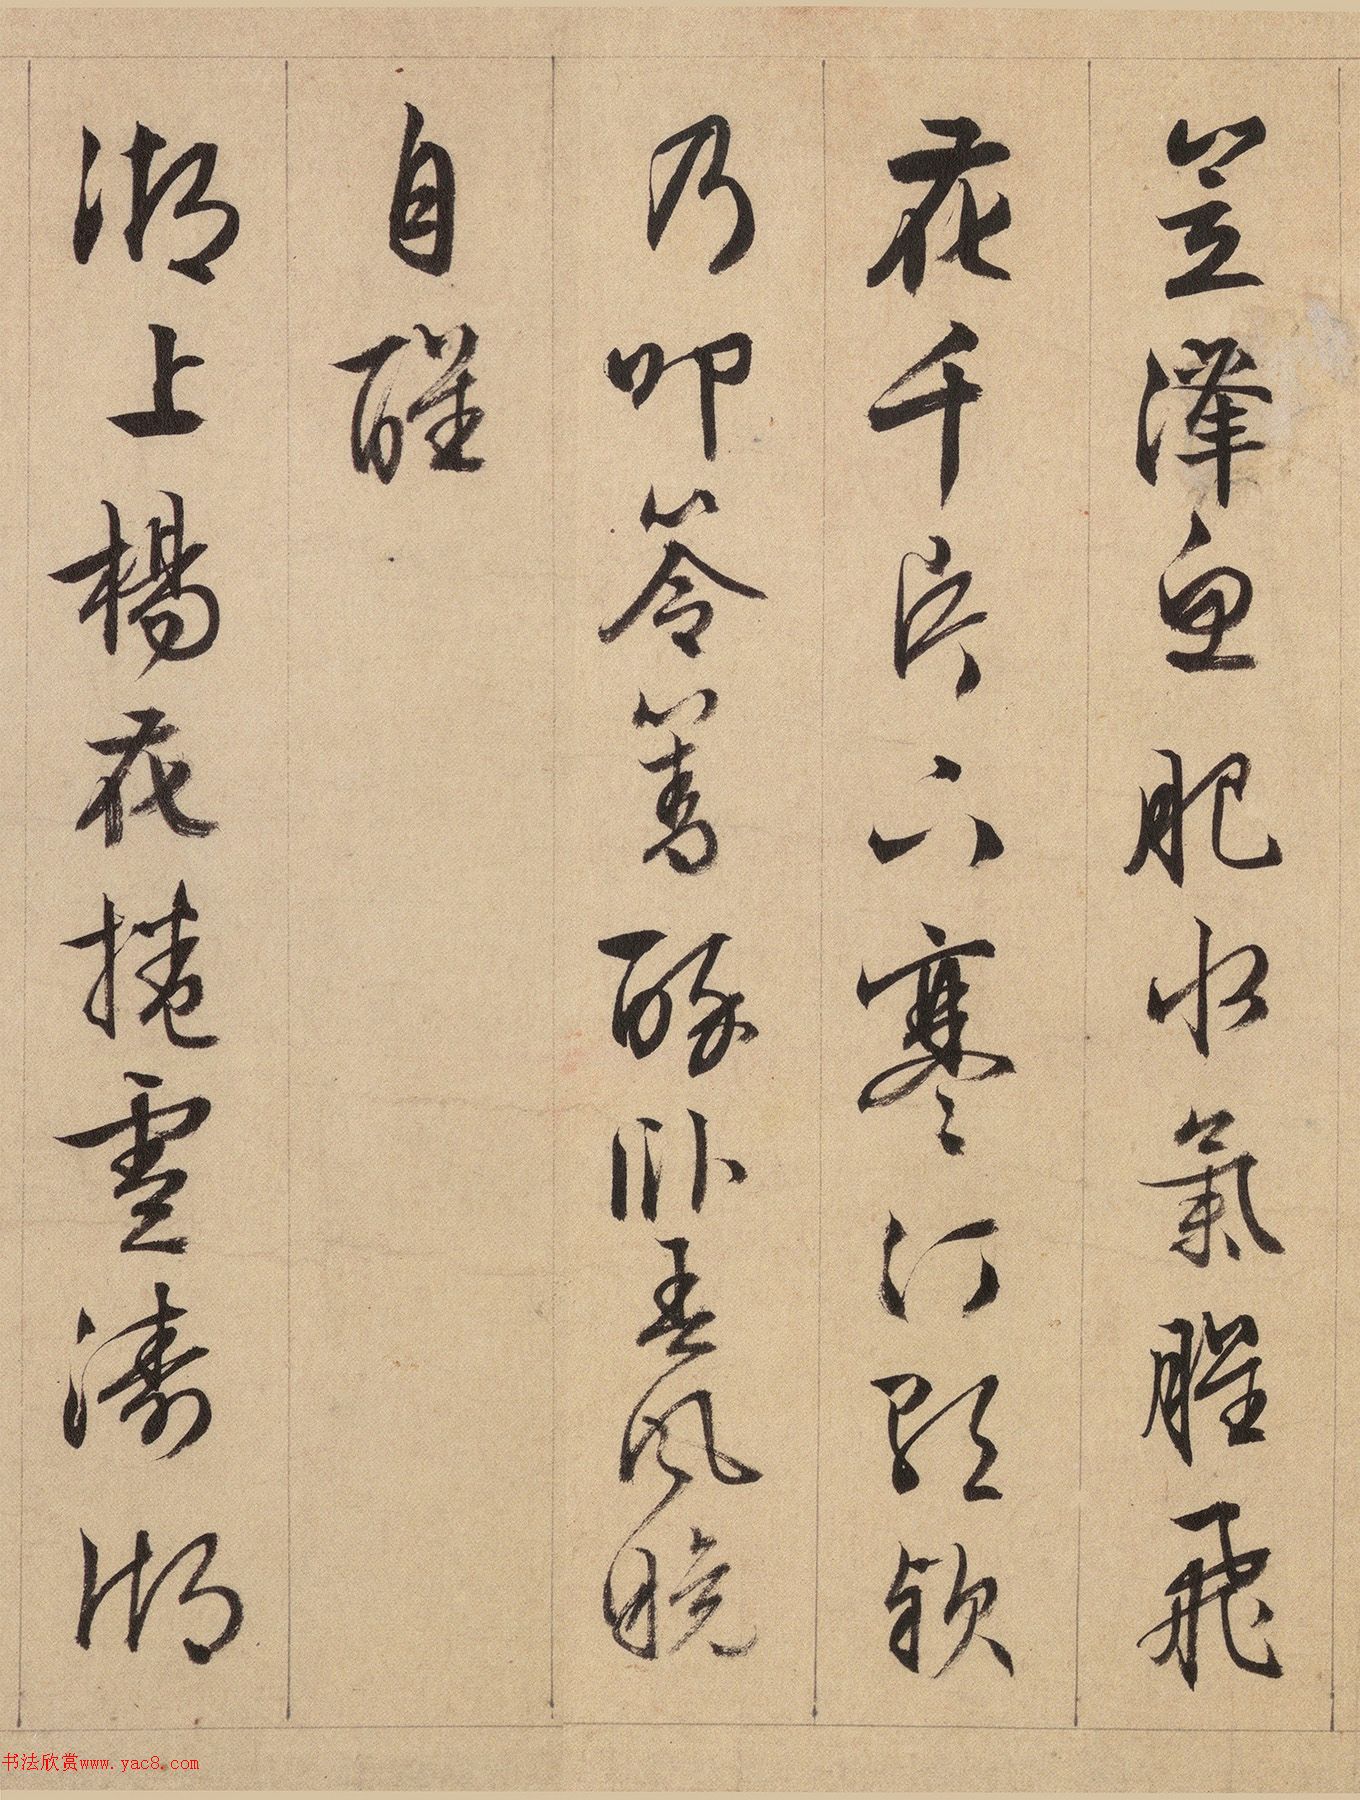 笠澤魚肥水氣腥飛
花千片下寒汀歌欸
乃叩笭箵醉卧春風晚
自醒
湖上楊花捲雪濤湖
书法欣赏www.yac8.com